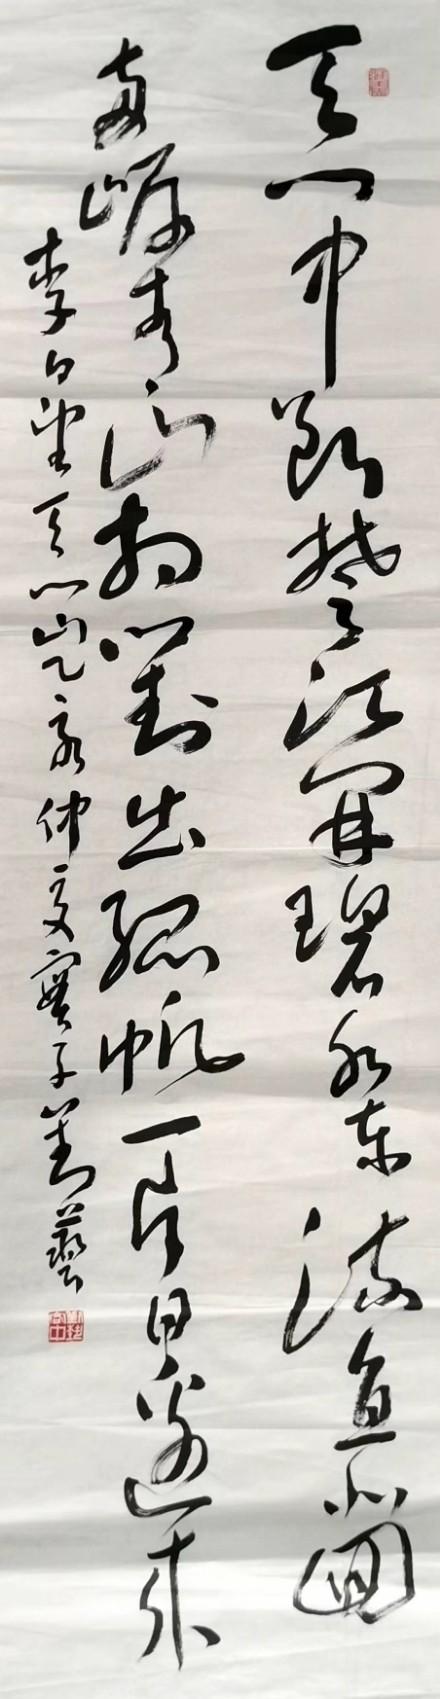 天門中斷楚江開碧水東流直北迴
兩岸青山相對出孤帆一片日邊來
李白望天門山乙亥仲夏劉藝